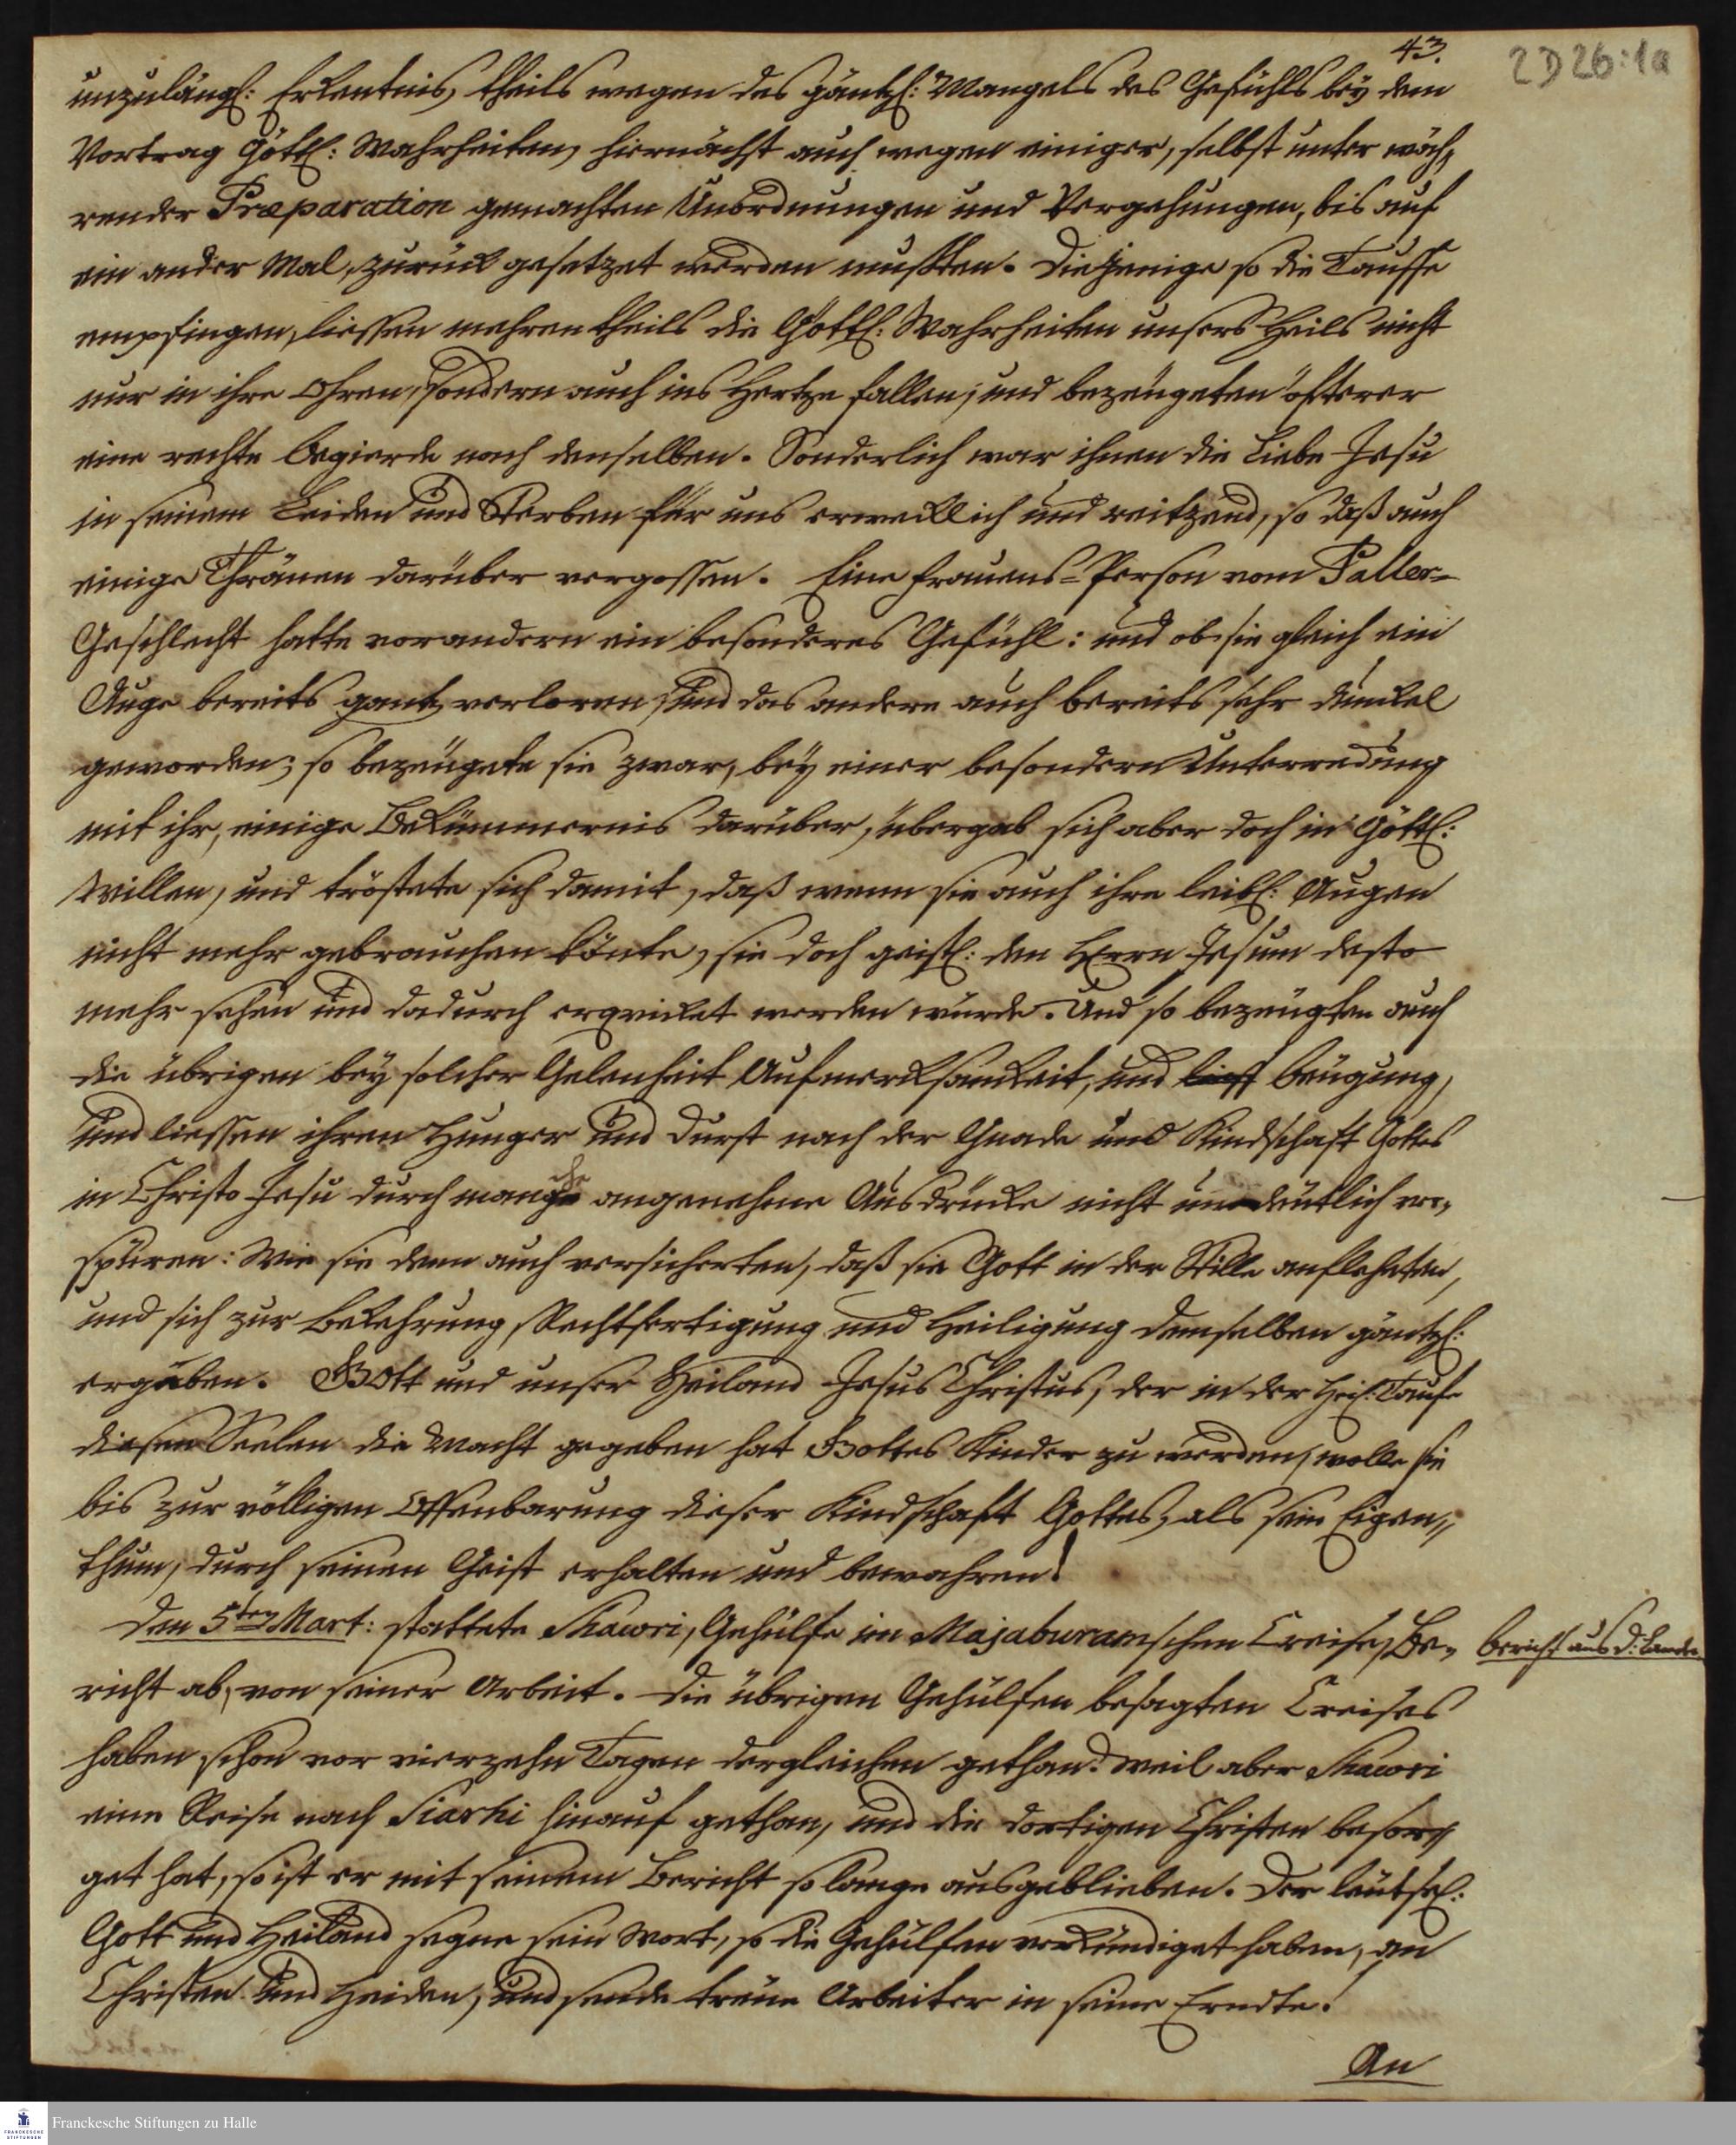 43.
2D26:1a
unzulängl: Erkentnis, theils wegen des gäntzl: Mangels des Gefühls bey dem
Vortrag Göttl: Wahrheiten, hiernächst auch wegen einiger, selbst unter wäh„
render Præparation gemachten Unordnungen und Vergehungen, bis auf
ein ander Mal, zurück gesetzet werden mußten. Diejenige so die Tauffe
empfingen, liessen mehrentheils die Göttl: Wahrheiten unsers Heils nicht
nur in ihre Ohren, sondern auch ins Hertze fallen, und bezeugeten öffterer
eine rechte Begierde nach denselben. Sonderlich war ihnen die Liebe Jesu
in seinem Leiden und Sterben für uns erwecklich und reitzend, so daß auch
einige Thränen darüber vergossen. Eine Frauens-Person vom Paller-
Geschlecht hatte vor andern ein besonderes Gefühl: und ob sie gleich ein
Auge bereits gantz verloren, und das andere auch bereits sehr dunckel
geworden; so bezeugete sie zwar, bey einer besondern Unterredung
mit ihr, einige Bekümmernis darüber, übergab sich aber doch in Göttl:
Willen, und tröstete sich damit, daß wenn sie auch ihre leibl: Augen
nicht mehr gebrauchen könte, sie doch geistl: den HErrn Jesum desto
mehr sehen und dadurch erquicket werden würde. Und so bezeugten auch
die übrigen bey solcher Gelenheit Aufmercksamkeit, und Beugung,
und liessen ihren Hunger und Durst nach der Gnade und Kindschaft Gottes
in Christo Jesu durch manche angenehme Ausdrücke nicht undeutlich ver„
spüren: Wie sie denn auch versicherten, daß sie Gott in der Stille anfleheten,
und sich zur Bekehrung, Rechtfertigung und Heiligung demselben gäntzl:
ergäben. GOtt und unser Heiland Jesus Christus, der in der Heil: Taufe
diesen Seelen die Macht gegeben hat Gottes Kinder zu werden, wolle sie
bis zur völligen Offenbarung dieser Kindschaft Gottes, als sein Eigen„
thum, durch seinen Geist erhalten und bewahren!
Den 5ten Mart: stattete Shawri, Gehülfe im Majaburamschen Creise, Be„
Bericht aus d: Lande.
richt ab, von seiner Arbeit. Die übrigen Gehülfen besagten Creises
haben schon vor vierzehn Tagen dergleichen gethan. Weil aber Shawri
eine Reise nach Siarhi hinauf gethan, und die dortigen Christen besor„
get hat, so ist er mit seinem Bericht so lange ausgeblieben. Der leutsel:
Gott und Heiland segne sein Wort, so die Gehülfen verkündiget haben, an
Christen und Heiden, und sende treue Arbeiter in seine Erndte!
An
Franckesche Stiftungen zu Halle
FRANCKESCHE STIFTUNGEN